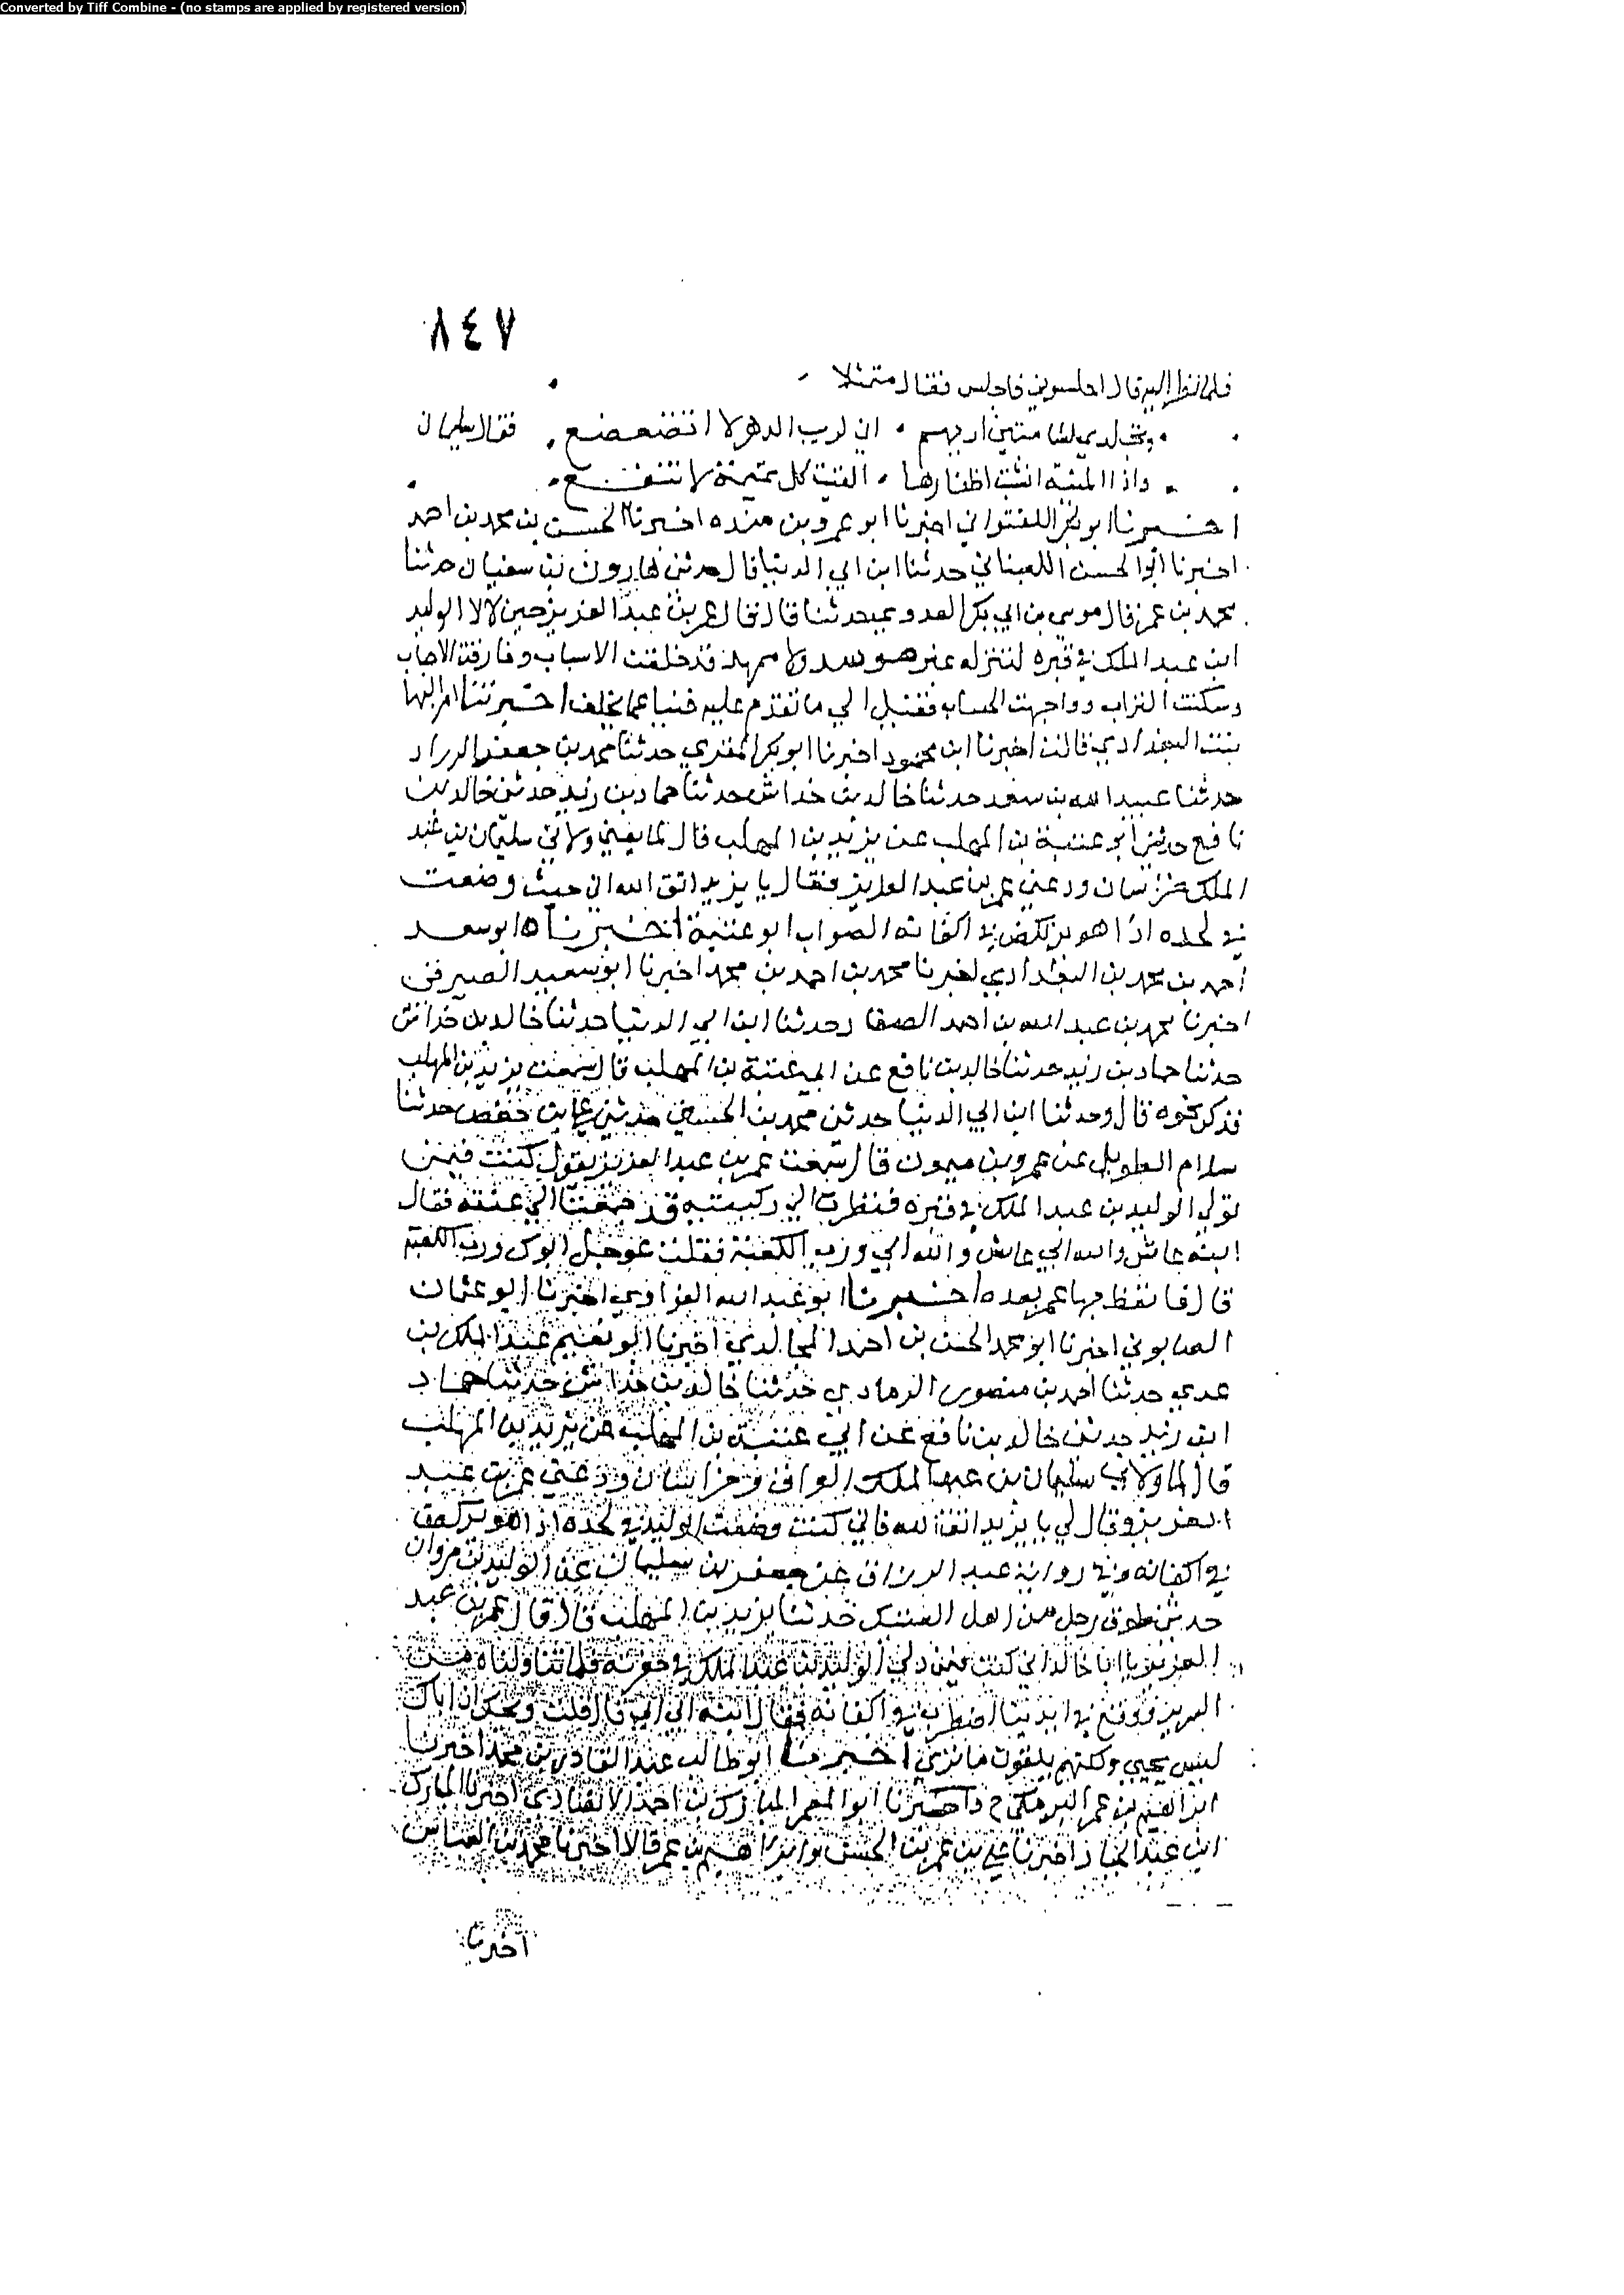 Converted by Tiff Combine - (no stamps are applied by registered version)
٨٤٧
فلما نظر إليه قال اجلسوني فاجلس فقال متمثلا
وتجلدي للشامتين اريهم ان لريب الدهر لا اتضعضع فقال سليمان
واذا المنية انشبت اظفارها الفيت كل تميمة لا تنفع
اخبرنا ابو بكر اللفتواني اخبرنا ابو عمرو بن منده اخبرنا الحسن بن محمد بن احمد
اخبرنا ابو الحسن اللنباني حدثنا ابن ابي الدنيا قال حدثني هارون بن سفيان حدثنا
محمد بن عمر قال موسى بن ابي بكر حدثنا قال قال عمر بن عبد العزيز حين الوليد
ابن عبد الملك في قبره لتنزله غير موسد ولا ممهد قد خلفت الاسباب وفارقت الاحباب
وسكنت التراب وواجهت الحساب فقير الي ما تقدم عليه غنيا عما يخلف اخبرتنا ام البها
بنت البغدادي قالت اخبرنا ابن محمود اخبرنا ابو بكر المقري حدثنا محمد بن جعفر الزراد
حدثنا عبيد الله بن سعد حدثنا خالد بن خداش حدثنا حماد بن زيد حدثني خالد بن
نافع حدثني ابو عنبسة بن المهلب عن يزيد بن المهلب قال لما يعني ولاني سليمان بن عبد
الملك خراسان ودعني عمر بن عبد العزيز فقال يا يزيد اتق الله اني حيث وضعت
في لحده اذا هو يرتكض في اكفانه الصواب ابو عيينة اخبرناه ابو سعد
احمد بن محمد بن البغدادي اخبرنا محمد بن احمد بن محمد اخبرنا ابو سعيد الصيرفي
اخبرنا محمد بن عبد الله بن احمد الصفار حدثنا ابن ابي الدنيا حدثنا خالد بن خداش
حدثنا حماد بن زيد حدثنا خالد بن نافع عن ابي عيينة بن المهلب قال سمعت يزيد بن المهلب
فذكر نحوه قال وحدثنا ابن ابي الدنيا حدثني محمد بن الحسين حدثني علي بن حفص حدثنا
سلام الطويل عن عمرو بن ميمون قال سمعت عمر بن عبد العزيز يقول كنت فيمن
تولي الوليد بن عبد الملك في قبره فنظرت الي ركبتيه قد جمعتا الي عنقه فقال
ابنه عاش والله ابي عاش والله ابي ورب الكعبة فقلت عوجل ابوك ورب الكعبة
قال فاتعظ بها عمر بعده اخبرنا ابو عبد الله الفراوي اخبرنا ابو عثمان
الصابوني اخبرنا ابو محمد الحسن بن احمد المخالدي اخبرنا ابو نعيم عبد الملك بن
عدي حدثنا احمد بن منصور الرمادي حدثنا خالد بن خداش حدثنا حماد
ابن زيد حدثني خالد بن نافع عن ابي عيينة بن المهلب عن يزيد بن المهلب
قال لما ولاني سليمان بن عبد الملك العراق وخراسان ودعني عمر بن عبد
العزيز وقال لي يا يزيد اتق الله فاني كنت وضعت الوليد في لحده اذا هو يركض
في اكفانه وفي رواية عبد الرزاق عن جعفر بن سليمان عن الوليد بن مروان
حدثني طوق رجل من اهل العتيك حدثنا يزيد بن المهلب قال قال عمر بن عبد
العزيز يا ابا خالد اني كنت فيمن دلي الوليد بن عبد الملك في حفرته فلما تناولناه من
السرير ووقع في ايدينا اضطرب في اكفانه فقال ابنه ابي ابي قال قلت ويحك ان اباك
ليس بحي ولكنهم يلقون ما تري اخبرنا ابو طالب عبد القادر بن محمد اخبرنا
ابراهيم بن عمر البرمكي ح واخبرنا ابو المعمر المبارك بن احمد الانصاري اخبرنا المبارك
ابن عبد الجبار اخبرنا علي بن عمر بن الحسن وابراهيم بن عمر قالا اخبرنا محمد بن العباس
اخبرنا